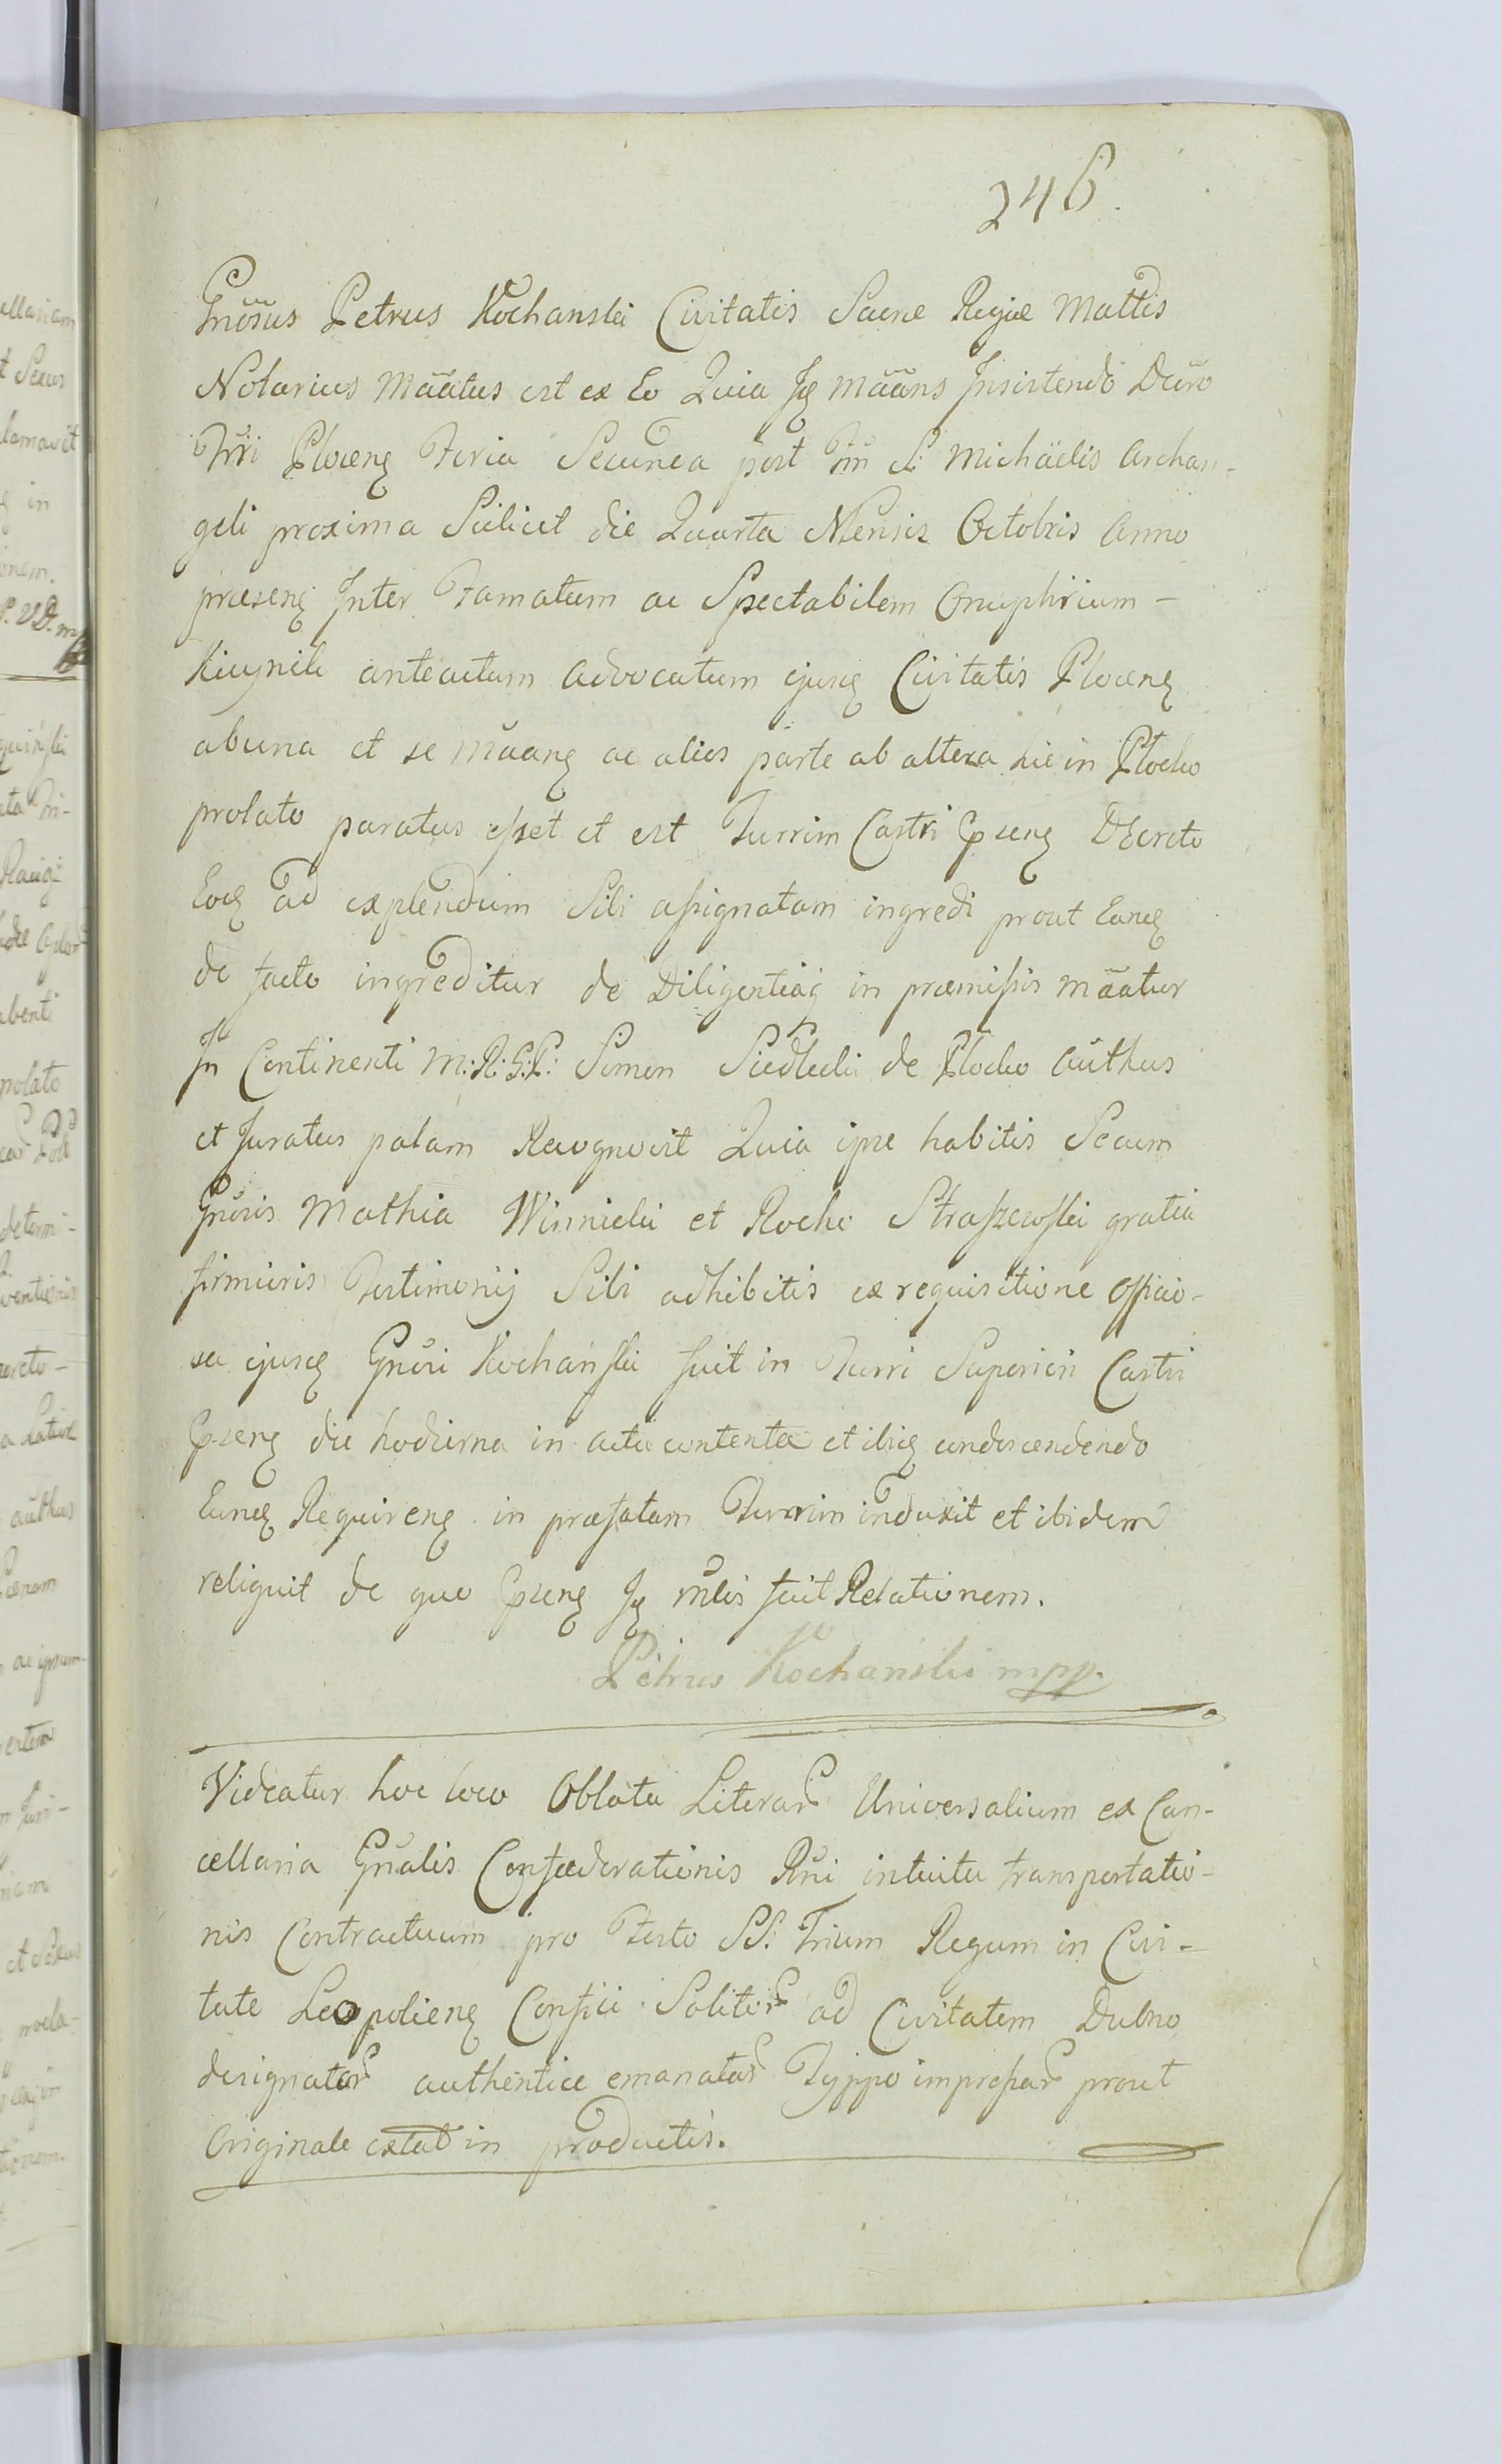 246.
Gnõsus Petrus Kochanski Civitatis Sacræ Regiæ Mattis
Notarius Mããtus est ex Eo Quia Ip Mããns Insistendo Dcŭro
Trři Plocenȩ Feria Secunda post Fm̃ S: Michäelis Archan-
geli proxima Scilicet die Quarta Mensis Octobris Anno
præsenȩ Inter Famatum ac Spectabilem Onuphrium -
anteactum advocatum ejusȩ Civitatis Plocenȩ
abuna et se mãanȩ ac alios parte ab altera hic in Plocko
prolato paratus esset et est Turrim Castri Gpsenȩ Decreto
Eodȩ ad explendum Sibi assignatam ingredi prout Eandȩ
de facto ingreditur de Diligentiaq̃ in præmissis mãatur
In Continenti M: R: G: P: Simon Siedlecki de Plocko authus
et Juratus palam Recognovit Quia ipse habitis Secum
Gnŭris Mathia Winnicki et Rocho Straszewski gratia
firmioris Testimonij Sibi adhibitis ex requisitione officio-
sa ejusȩ Gnŭri Kochański fuit in Turri Superiori Castri
Gpsenȩ die hodierna in actu contenta et ibiȩ condescendendo
Eundȩ Requirenȩ in præfatam Turrim induxit et ibidem
reliquit de quo Gpsenȩ Ip mlis fecit Relationem.
Petrus Kochanski mpp.
Videatur hoc loco Oblata Literar̃ Universalium ex Can-
cellaria Gñalis Confœderationis Rñi intuitu transportatio-
nis Contractuum pro Festo SS: Trium Regum in Civi-
tate Leopolienȩ Confici Solitor̃ ad Civitatem Dubno
designator̃ authentice emanatar̃ Typpo impressar̃ prout
Originale extat in productis.